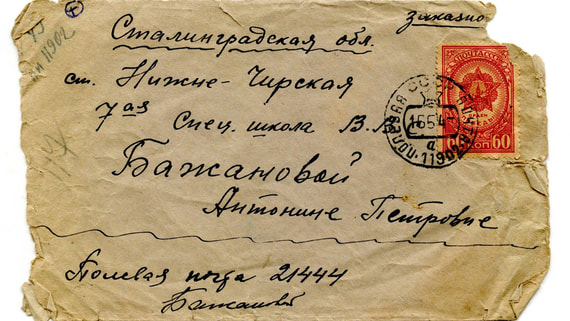 заказное
№ 11902
Сталинградская обл.
ст. Нижне-Чирская
7ая
Спец. школа В.М.
Бажановой
Антонине Петровне
Полевая почта 21444
Бажанов
ПОЧТА СССР
60
КОП
ПОЛЕВАЯ ПОЧТА
11902
а